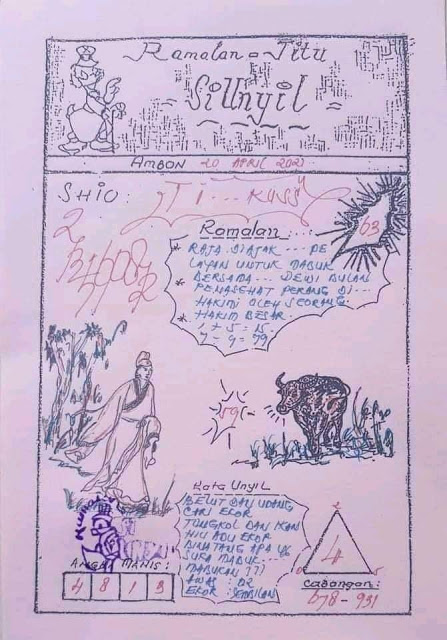 Ramalan = Jitu
SiUnyil
AMBON 20 APRIL 2021
SHIO: TI... KUSS
2
63
Ramalan:
* RAJA DIAJAK --- PE
LAYAN UNTUK MABUK
BERSAMA --- DEWI BULAN
* PENASEHAT PERANG DI ---
HAKIMI OLEH SEORANG
HAKIM BESAR.
1 + 5 = 15
7 - 9 = 79
59
Kata Unyil
BELUT DAN UDANG
CARI EKOR
TONGKOL DAN IKAN
HIU ADU EKOR
BINATANG APA YG
SUKA MABUK
MABUKAN ???
AWAS: 02
EKOR: SEMBILAN
ANGKA MANIS:
4 8 1 3
2
4
0 5
Cabangan:
678 - 931